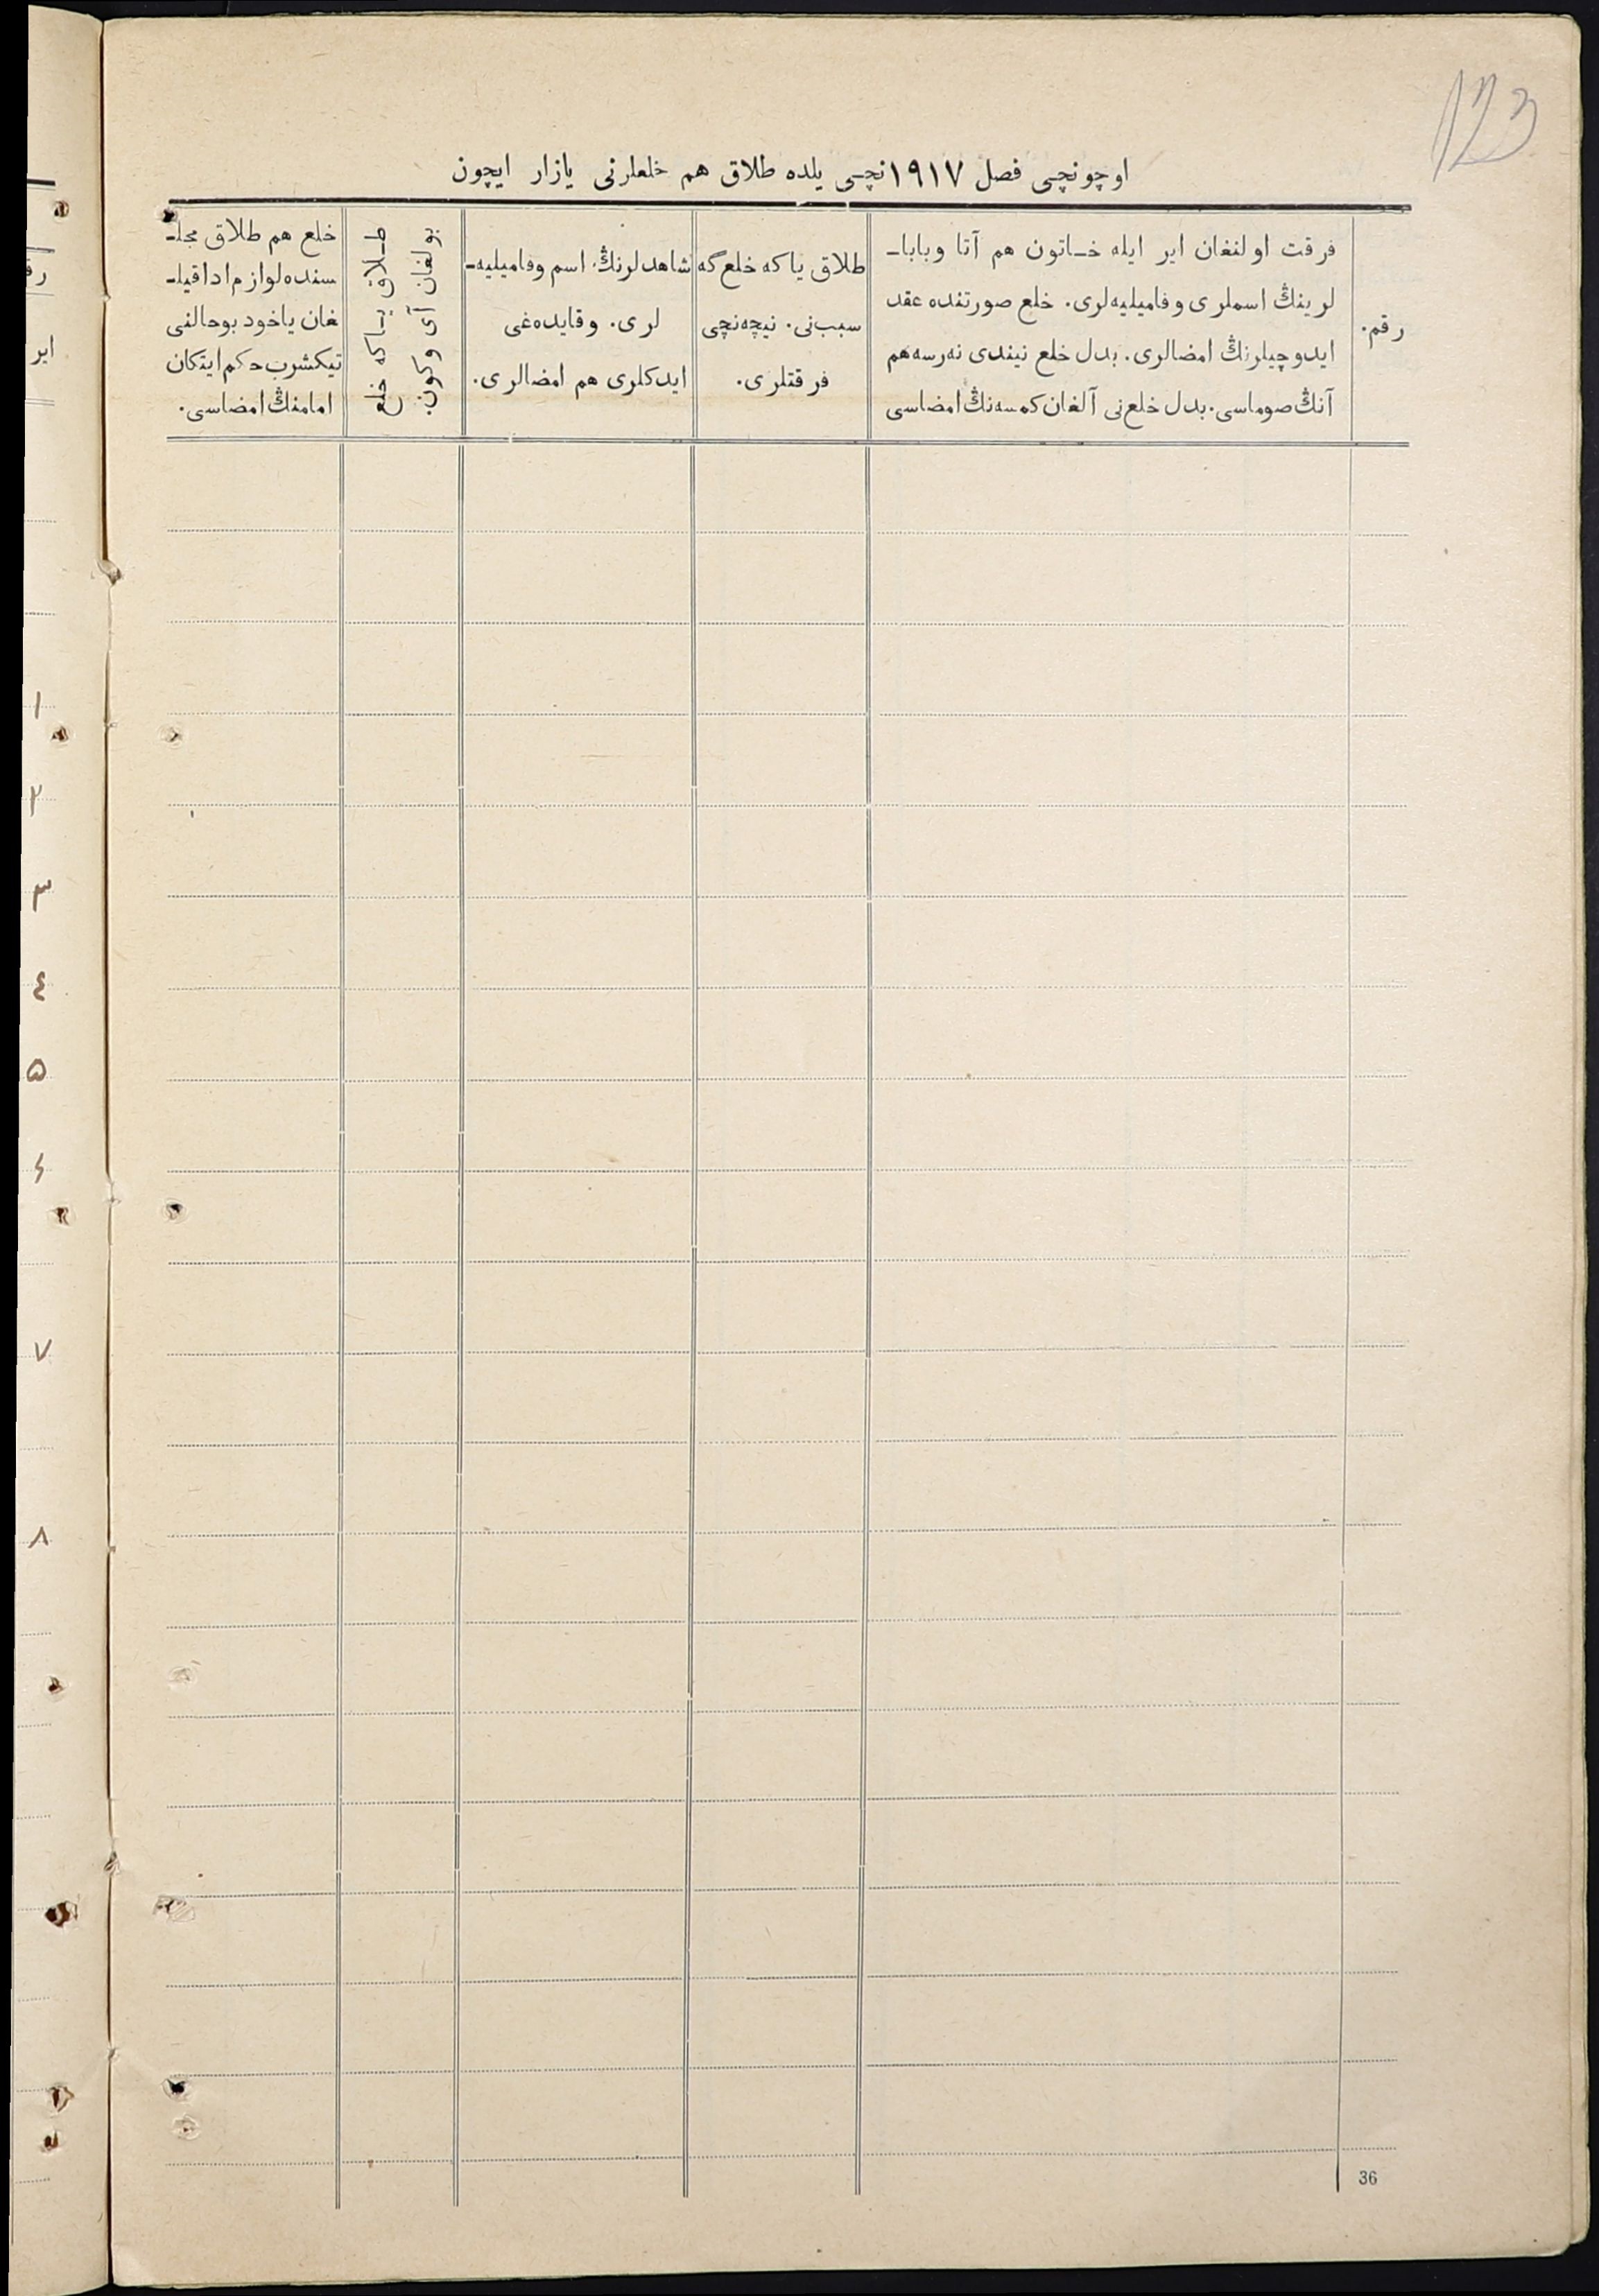 123
اوچونچی فصل ۱۹۱۷نچی یلده طلاق هم خلعلرنی یازار ایچون
رقم.
فرقت اولنغان ایر ایله خـاتون هم آتا وبابا-
لرینڭ اسملری وفامیلیه‌لری. خلع صورتنده عقد
ایدوچیلرنڭ امضالری. بدل خلع نیندی نه‌رسه‌هم
آنڭ صوماسی. بدل خلع‌نی آلغان کمسه‌نڭ امضاسی
طلاق یاکه خلع‌گه
سبب‌نی. نیچه‌نچی
فرقتلری.
شاهدلرنڭ اسم وفامیلیه-
لری. وقایده‌غی
ایدکلری هم امضالری.
طـلاق یـاکه خلع
بولغان آی وکون.
خلع هم طلاق مجلـ-
سنده لوازم ادا قیلـ-
غان یاخود بوحالنی
تیکشرب حکم ایتکان
امامنڭ امضاسی.
ایر
۱
۲
۳
٤
۵
۶
۷
۸
36